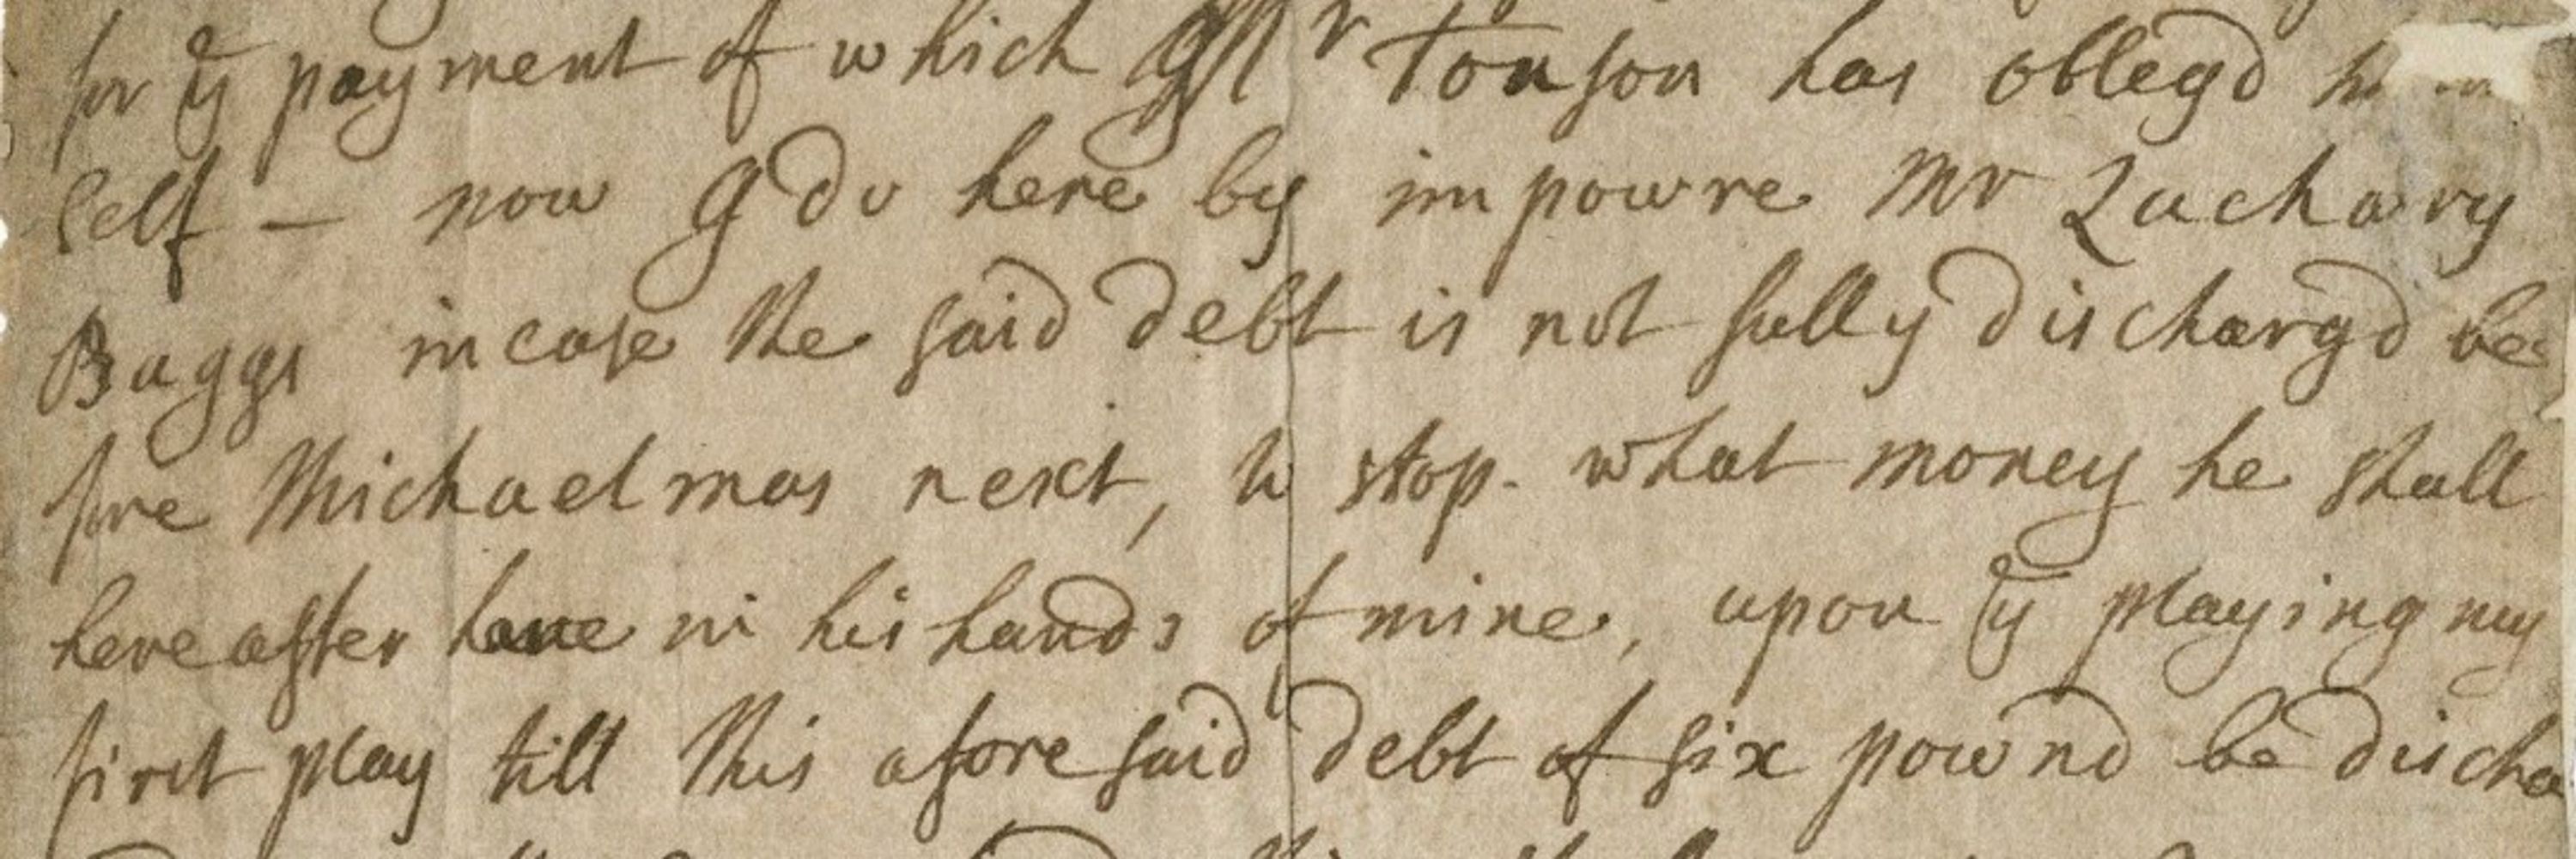 for ye payment of which Mr Tonson has oblegd
self — now I do here by impowre Mr Zachary
Baggs in case the said debt is not fully dischargd be
fore Michaelmas next, to stop what money he shall
hereafter have in his hands of mine, upon ye playing my
first play till this aforesaid debt of six pownd be discha